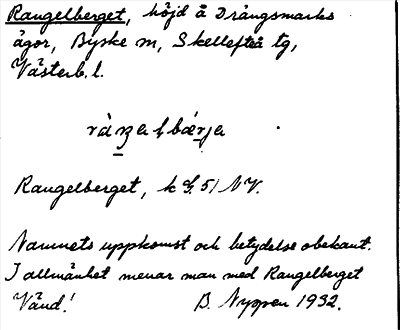 Rangelberget, höjd å Drängsmarks
ägor, Byske sn, Skellefteå tg,
Västerb. l.
Rangelberget, k bl. 51 NV.
Namnets uppkomst och betydelse obekant.
I allmänhet menar man med Rangelberget
B. Nygren 1932.